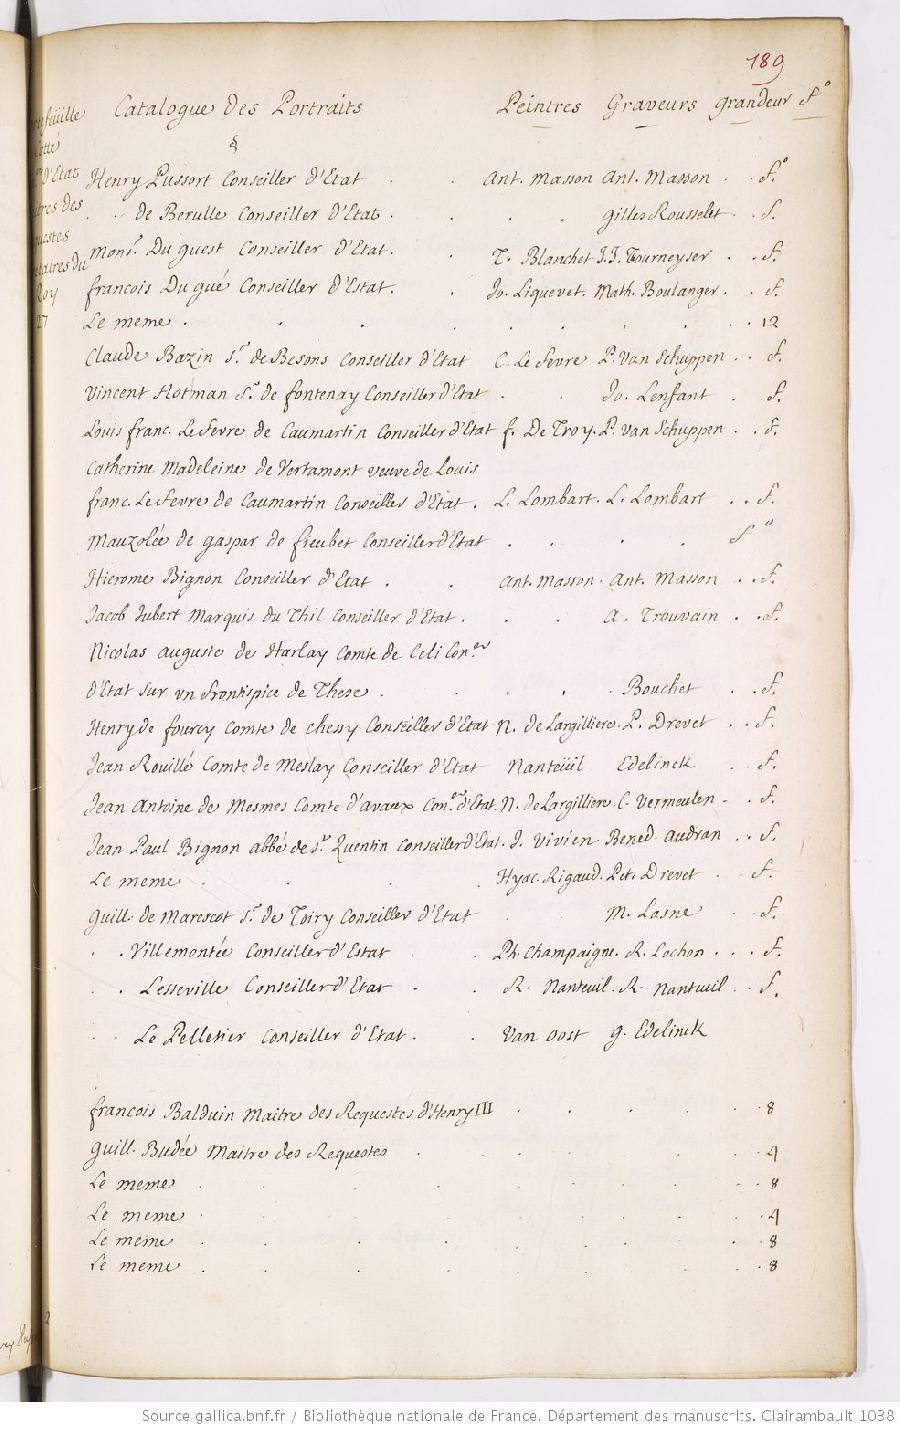 189
Catalogue des Portraits Peintres Graveurs grandeur f°
§
Henry Pussort Conseiller d'Etat . . Ant. Masson Ant. Masson . . f.°
. . de Berulle Conseiller d'Etat . . . . gilles Rousselet . . f.
Mons.r Du guest Conseiller d'Etat . . T. Blanchet J.J. Tourneyser . . f.
francois Du gué Conseiller d'Estat . . Jo. Liquevet. Math. Boulanger . . f.
Le meme . . . . . . . . . 12
Claude Bazin S.r de Besons Conseiller d'Etat C. Le Fevre P. Van Schuppen . . f.
Vincent Hotman S.r de fontenay Conseiller d'Etat . . Jo. Lenfant . f.
Louis franc. Le Fevre de Caumartin Conseiller d'Etat f. De Troy. P. Van Schuppen . . f.
Catherine Madeleine de Vertamont veuve de Louis
franc. Le Fevre de Caumartin Conseiller d'Etat . L. Lombart. L. Lombart . . f.
Mauzolée de gaspar de fieubet Conseiller d'Etat . . . . f°
Hierome Bignon Conseiller d'Etat . . Ant. Masson . Ant. Masson . . f.
Jacob Jubert Marquis du Thil Conseiller d'Etat . . . A. Trouvain . . f.
Nicolas auguste de Harlay Comte de Celi Con.er
d'Etat sur vn frontispice de These . . . . Bouchet . . f.
Henry de fourcy Comte de chessy Conseiller d'Etat N. de Largilliere. P. Drevet . . f.
Jean Rouillé Comte de Meslay Conseiller d'Etat Nanteüil Edelinck . f.
Jean Antoine de Mesmes Comte d'avaux Con.er d'Etat N. de Largilliere C. Vermeulen . . f.
Jean Paul Bignon abbé de S.t Quentin Conseiller d'Etat . J. Vivien Bened. Audran . . f.
Le meme . . . Hyac. Rigaud. Pet. Drevet . . f.
guill. de Marescot S.r de Toiry Conseiller d'Etat . M. Lasne . f.
. . Villemontée Conseiller d'Estat . Ph. Champaigne. R. Lochon . . . f.
. . Lesseville Conseiller d'Etat . . R. Nanteuil. R. Nanteuil . . f.
. . Le Pelletier Conseiller d'Etat . . Van Oost g. Edelinck
francois Balduin Maitre des Requestes d'Henry III . . . . . 8
guill. Budée Maitre des Requestes . . . . . . 4
Le meme . . . . . . . . 8
Le meme . . . . . . . . 4
Le meme . . . . . . . . 8
Le meme . . . . . . . . 8
Source gallica.bnf.fr / Bibliothèque nationale de France. Département des manuscrits. Clairambault 1038